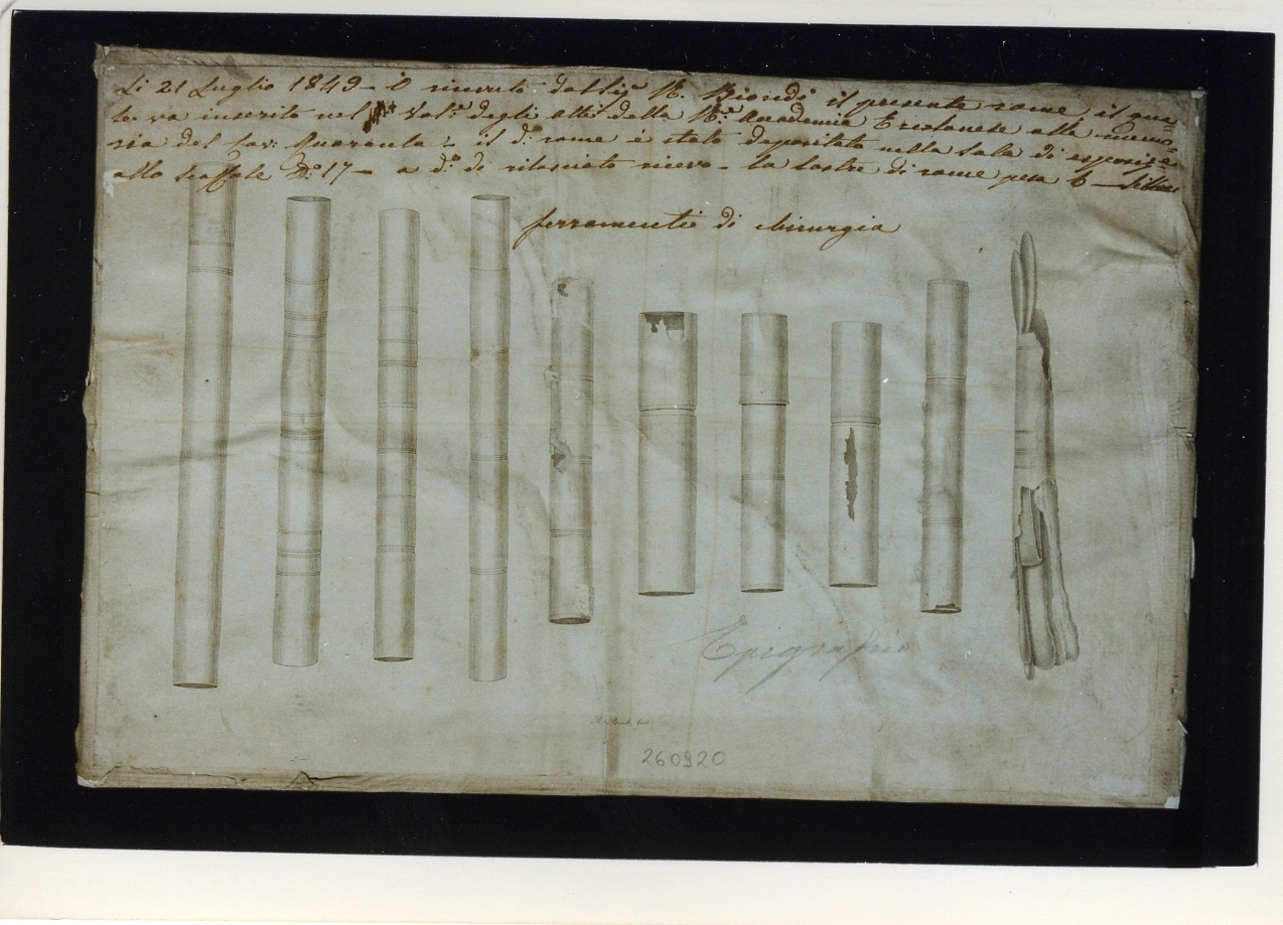 Li 21 Luglio 1849 – ò ricevuto dal Sig.r R. Biondi il presente rame, il qua=
le va inserito nel Vol.e degli Atti della R.e Accademia Ercolanese alla memo=
ria del Cav: Quaranta = il d.o rame è stato depositato nella Sala di esposiz.e
allo scaffale N.o 17 – a d.o di rilasciato ricevo – la lastra di rame pesa
ferramenti di chirurgia
Epigrafio
260920